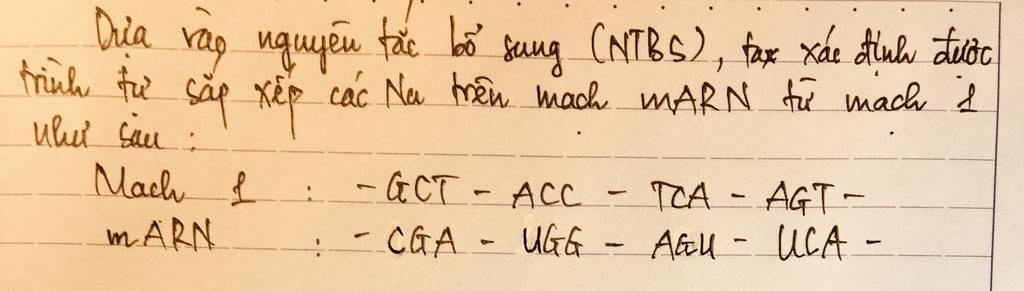 Dựa vào nguyên tắc bổ sung (NTBS), ta xác định được
trình tự sắp xếp các Nu trên mạch mARN từ mạch 1
như sau :
Mạch 1 : - GCT - ACC - TCA - AGT -
mARN : - CGA - UGG - AGU - UCA -